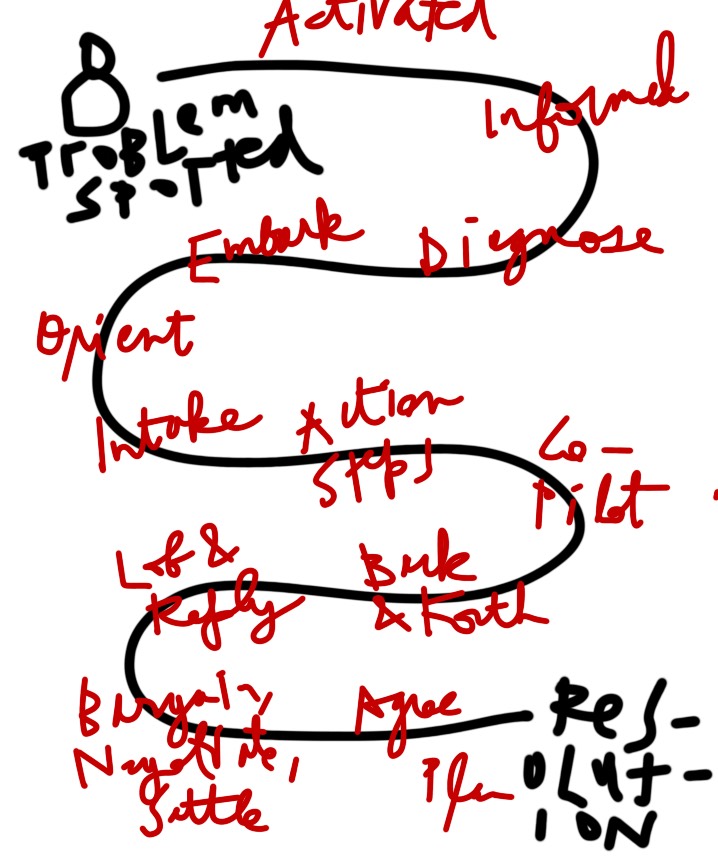 Activated
Informed
PROBLEM
SPOTTED
Embark
Diagnose
Orient
Intake
Action
Steps
Co-
Pilot
Back
& Forth
Reply
Bargain,
Negotiate,
Settle
Agree
Plan
RES-
OLUT-
ION